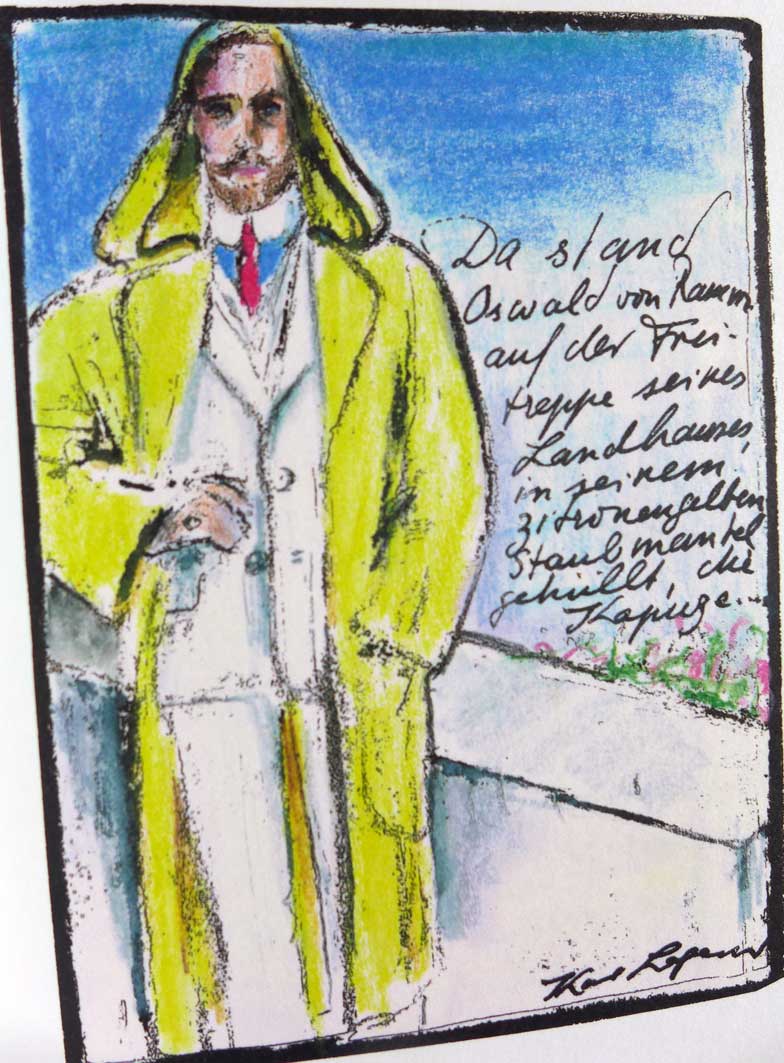 Da stand
Oswald von Ramm
auf der Frei-
treppe seines
Landhauses,
in seinem
zitronengelben
Staubmantel
gehüllt, die
Kapuze...
Karl Lagerfeld